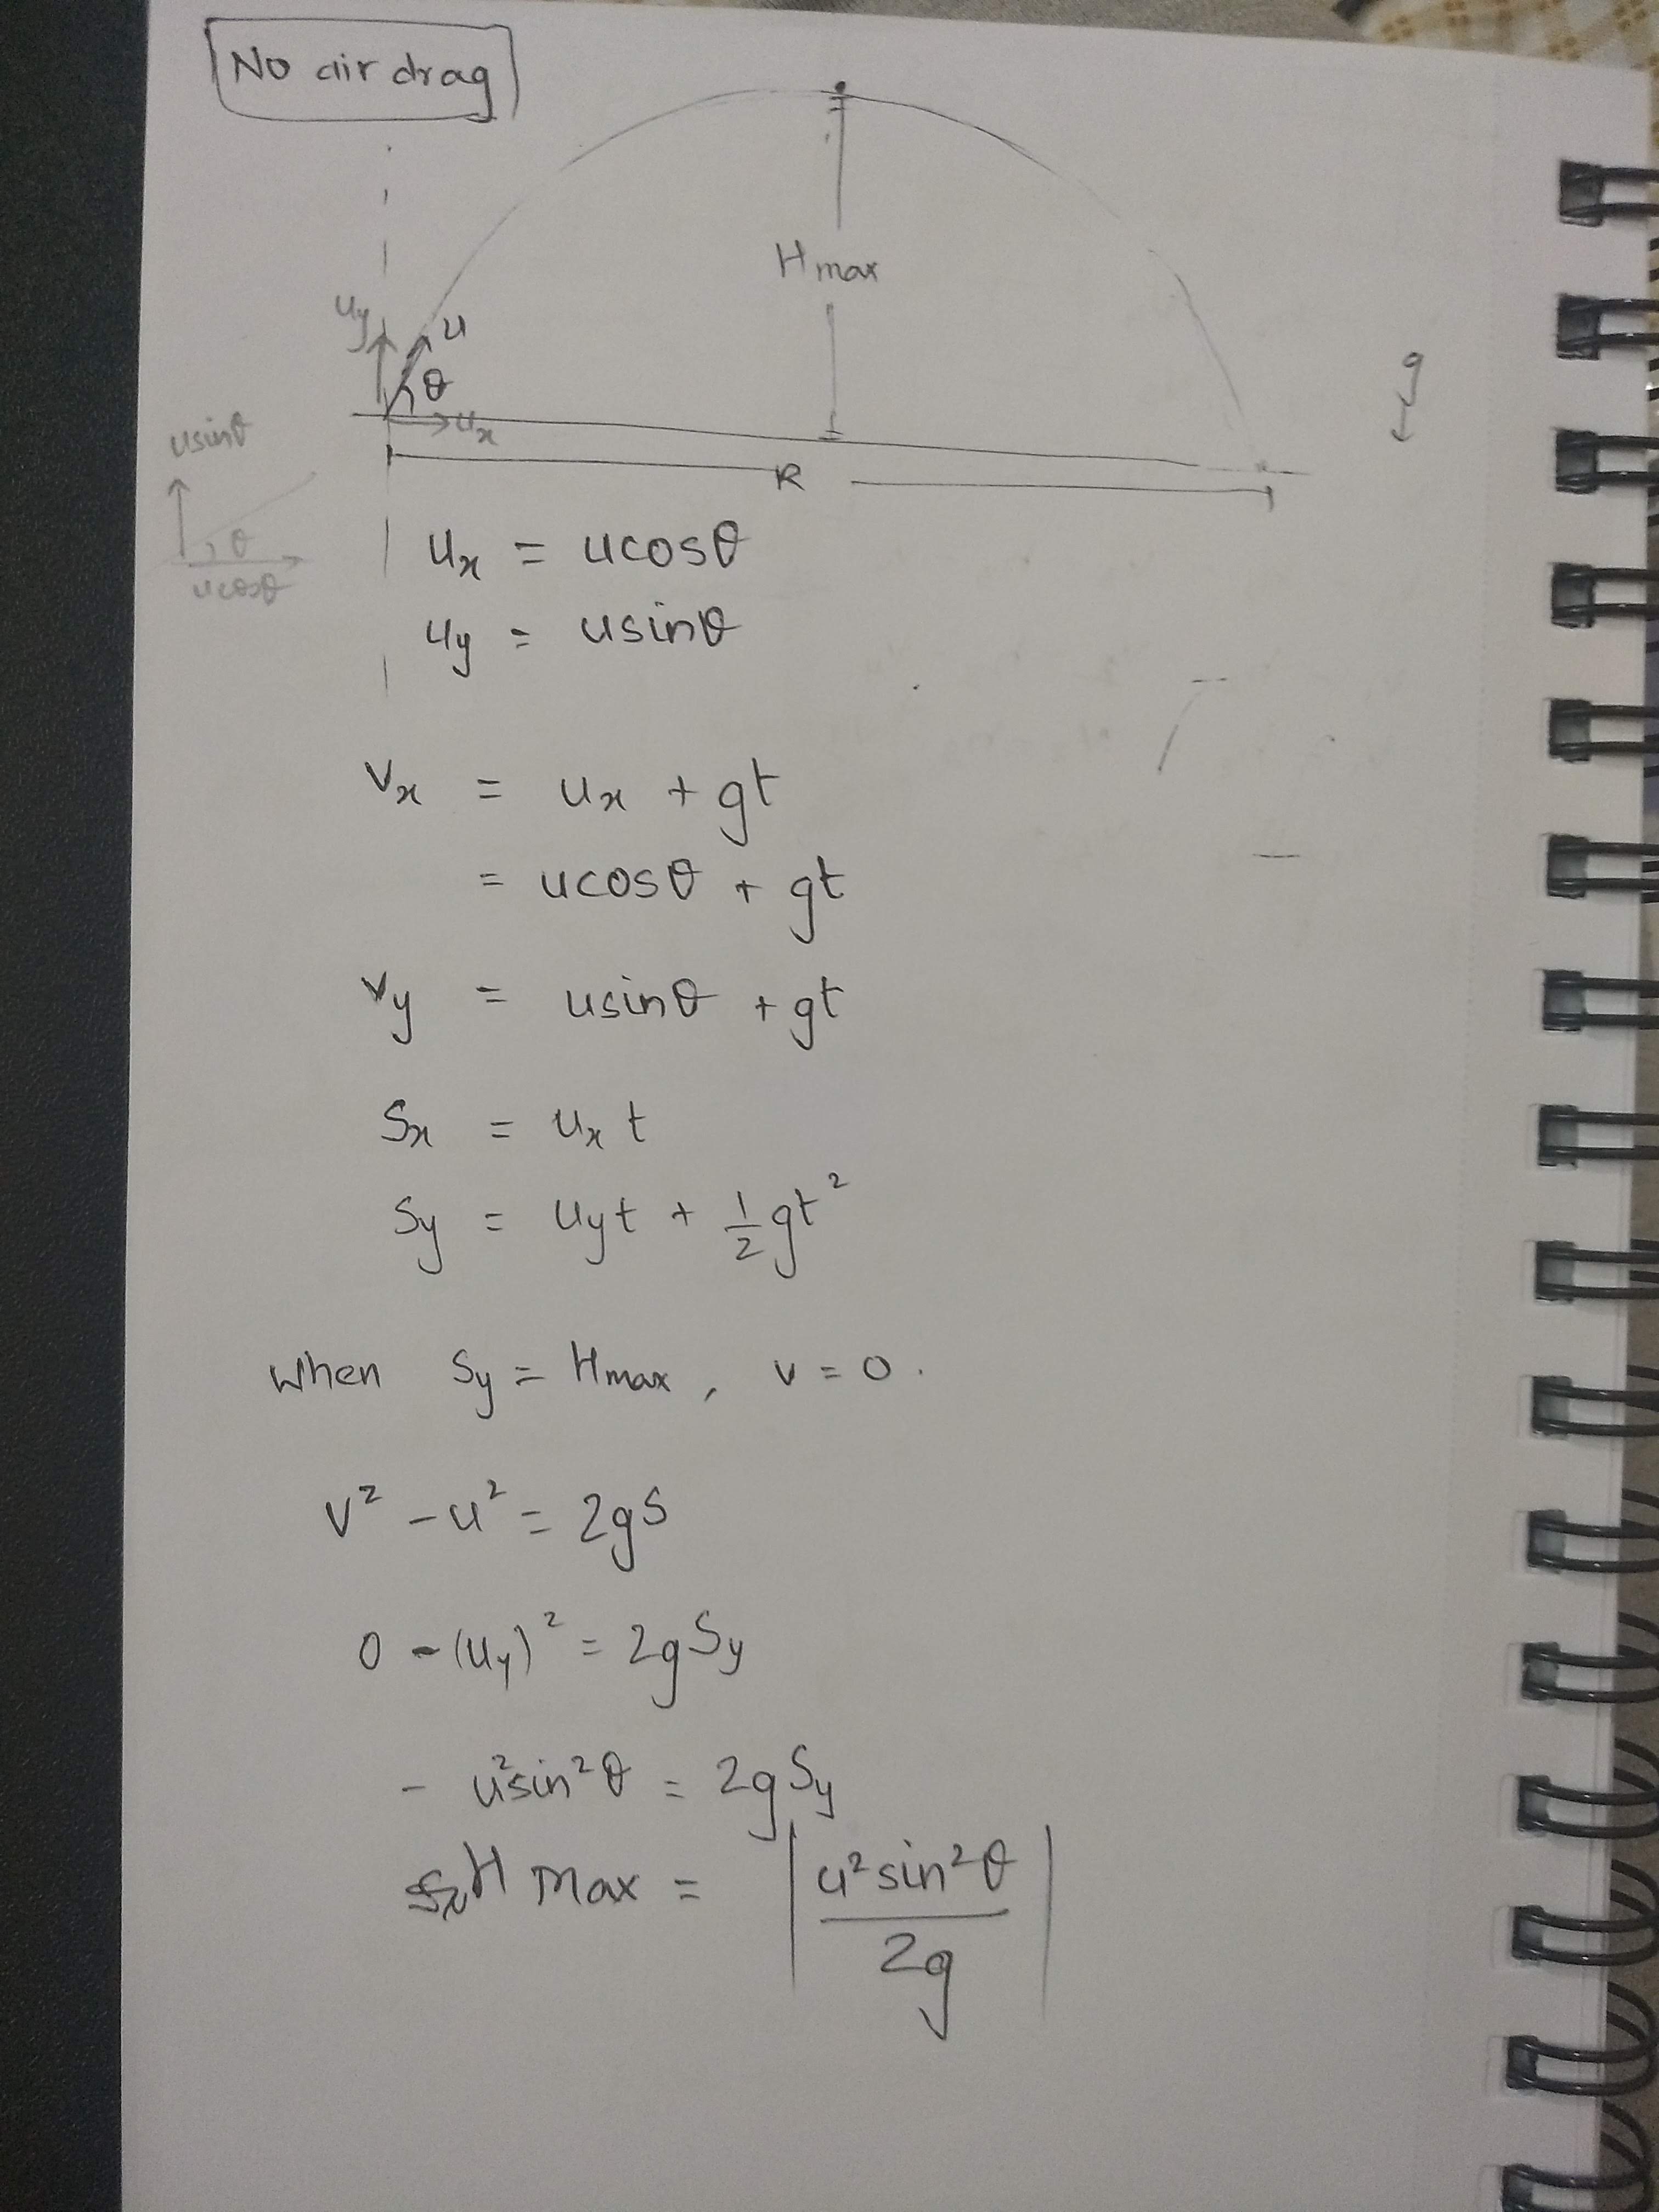 No air drag
Hmax
uy
u
θ
ux
g
usinθ
R
θ
ucosθ
ux = ucosθ
uy = usinθ
vx = ux + gt
= ucosθ + gt
vy = usinθ + gt
Sx = ux t
Sy = uyt + 1/2 gt²
when Sy = Hmax, v = 0.
v² - u² = 2gS
0 - (uy)² = 2gSy
- u²sin²θ = 2gSy
H max = |u²sin²θ / 2g|